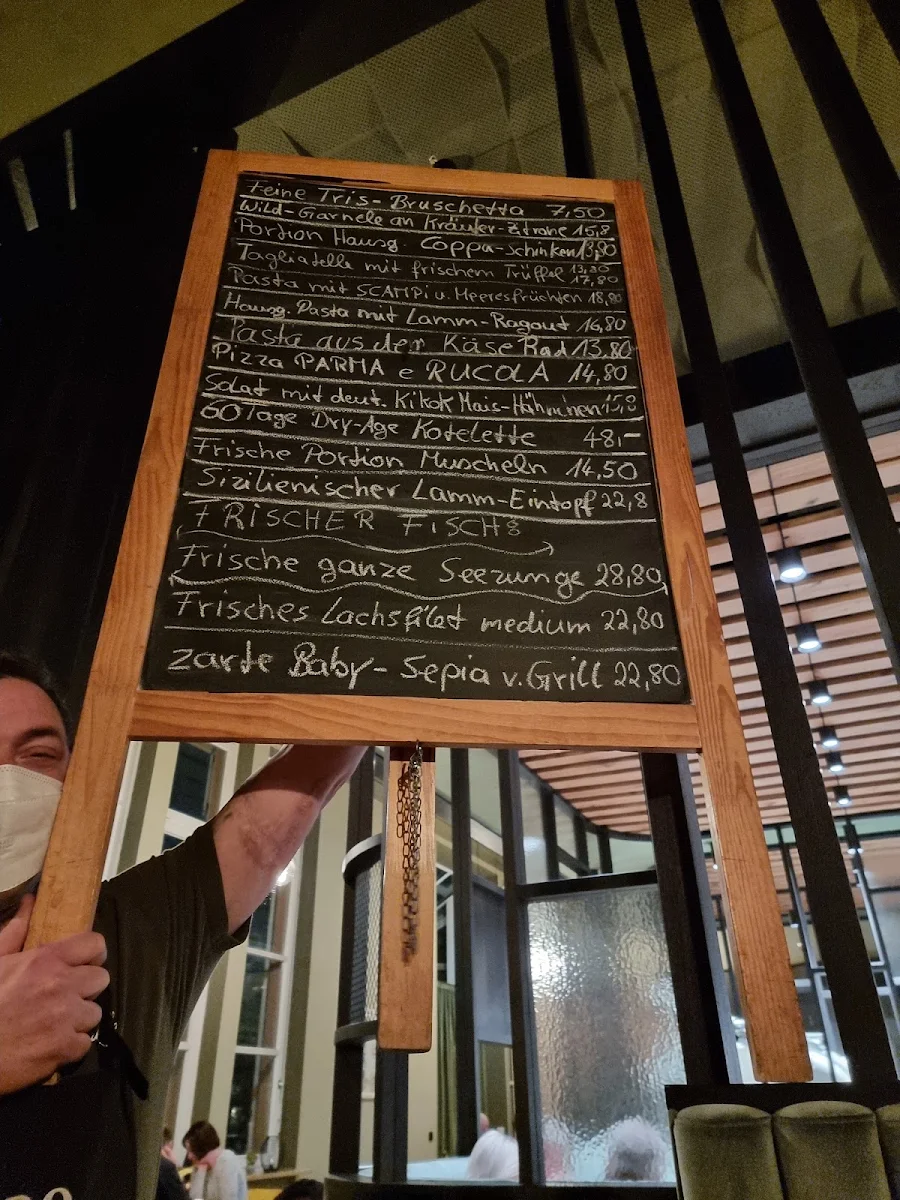 Feine Tris-Bruschetta 7,50
Wild-Garnele an Kräuter-Zitrone 15,8
Portion Hausg. Coppa-Schinken 13,80
Tagliatelle mit frischem Trüffel 13,80 17,80
Pasta mit SCAMPi u. Meeresfrüchten 18,80
Hausg. Pasta mit Lamm-Ragout 16,80
Pasta aus der Käse Rad 13,80
Pizza PARMA e RUCOLA 14,80
Salat mit deut. Kikok Mais-Hähnchen 15,8
60 Tage Dry-Age Kotelette 48,-
Frische Portion Muscheln 14,50
Sizilienischer Lamm-Eintopf 22,8
FRISCHER FISCH:
Frische ganze Seezunge 28,80
Frisches Lachsfilet medium 22,80
zarte Baby-Sepia v. Grill 22,80